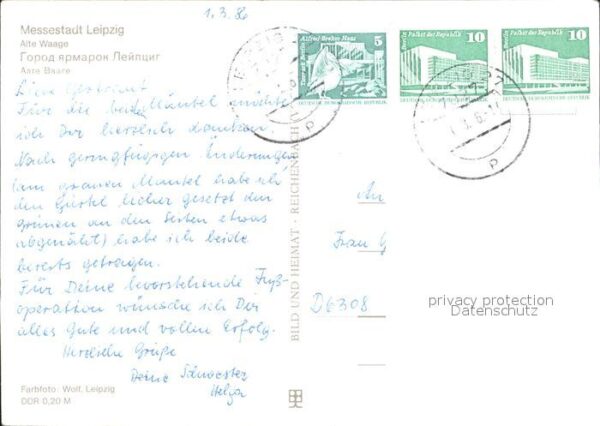 1.3.86
Messestadt Leipzig
Alte Waage
Город ярмарок Лейпциг
Алте Вааге
Liebe
Für die beiden Mäntel möchte
ich Dir herzlich danken.
Nach geringfügigen Änderungen
(am grauen Mantel habe ich
den Gürtel höher gesetzt den
Grünen an den Seiten etwas
abgenäht) habe ich beide
bereits getragen.
Für Deine bevorstehende Fuß-
operation wünsche ich Dir
alles Gute und vollen Erfolg.
Herzliche Grüße
Deine Schwester
Helga
Farbfoto: Wolf, Leipzig
DDR 0,20 M
BILD UND HEIMAT · REICHENBACH
Alfred Brehm Haus
Tierpark Berlin
5
DEUTSCHE DEMOKRATISCHE REPUBLIK
Berlin Palast der Republik
10
DEUTSCHE DEMOKRATISCHE REPUBLIK
Berlin Palast der Republik
10
DEUTSCHE DEMOKRATISCHE REPUBLIK
An
Frau G
D6308
privacy protection
Datenschutz